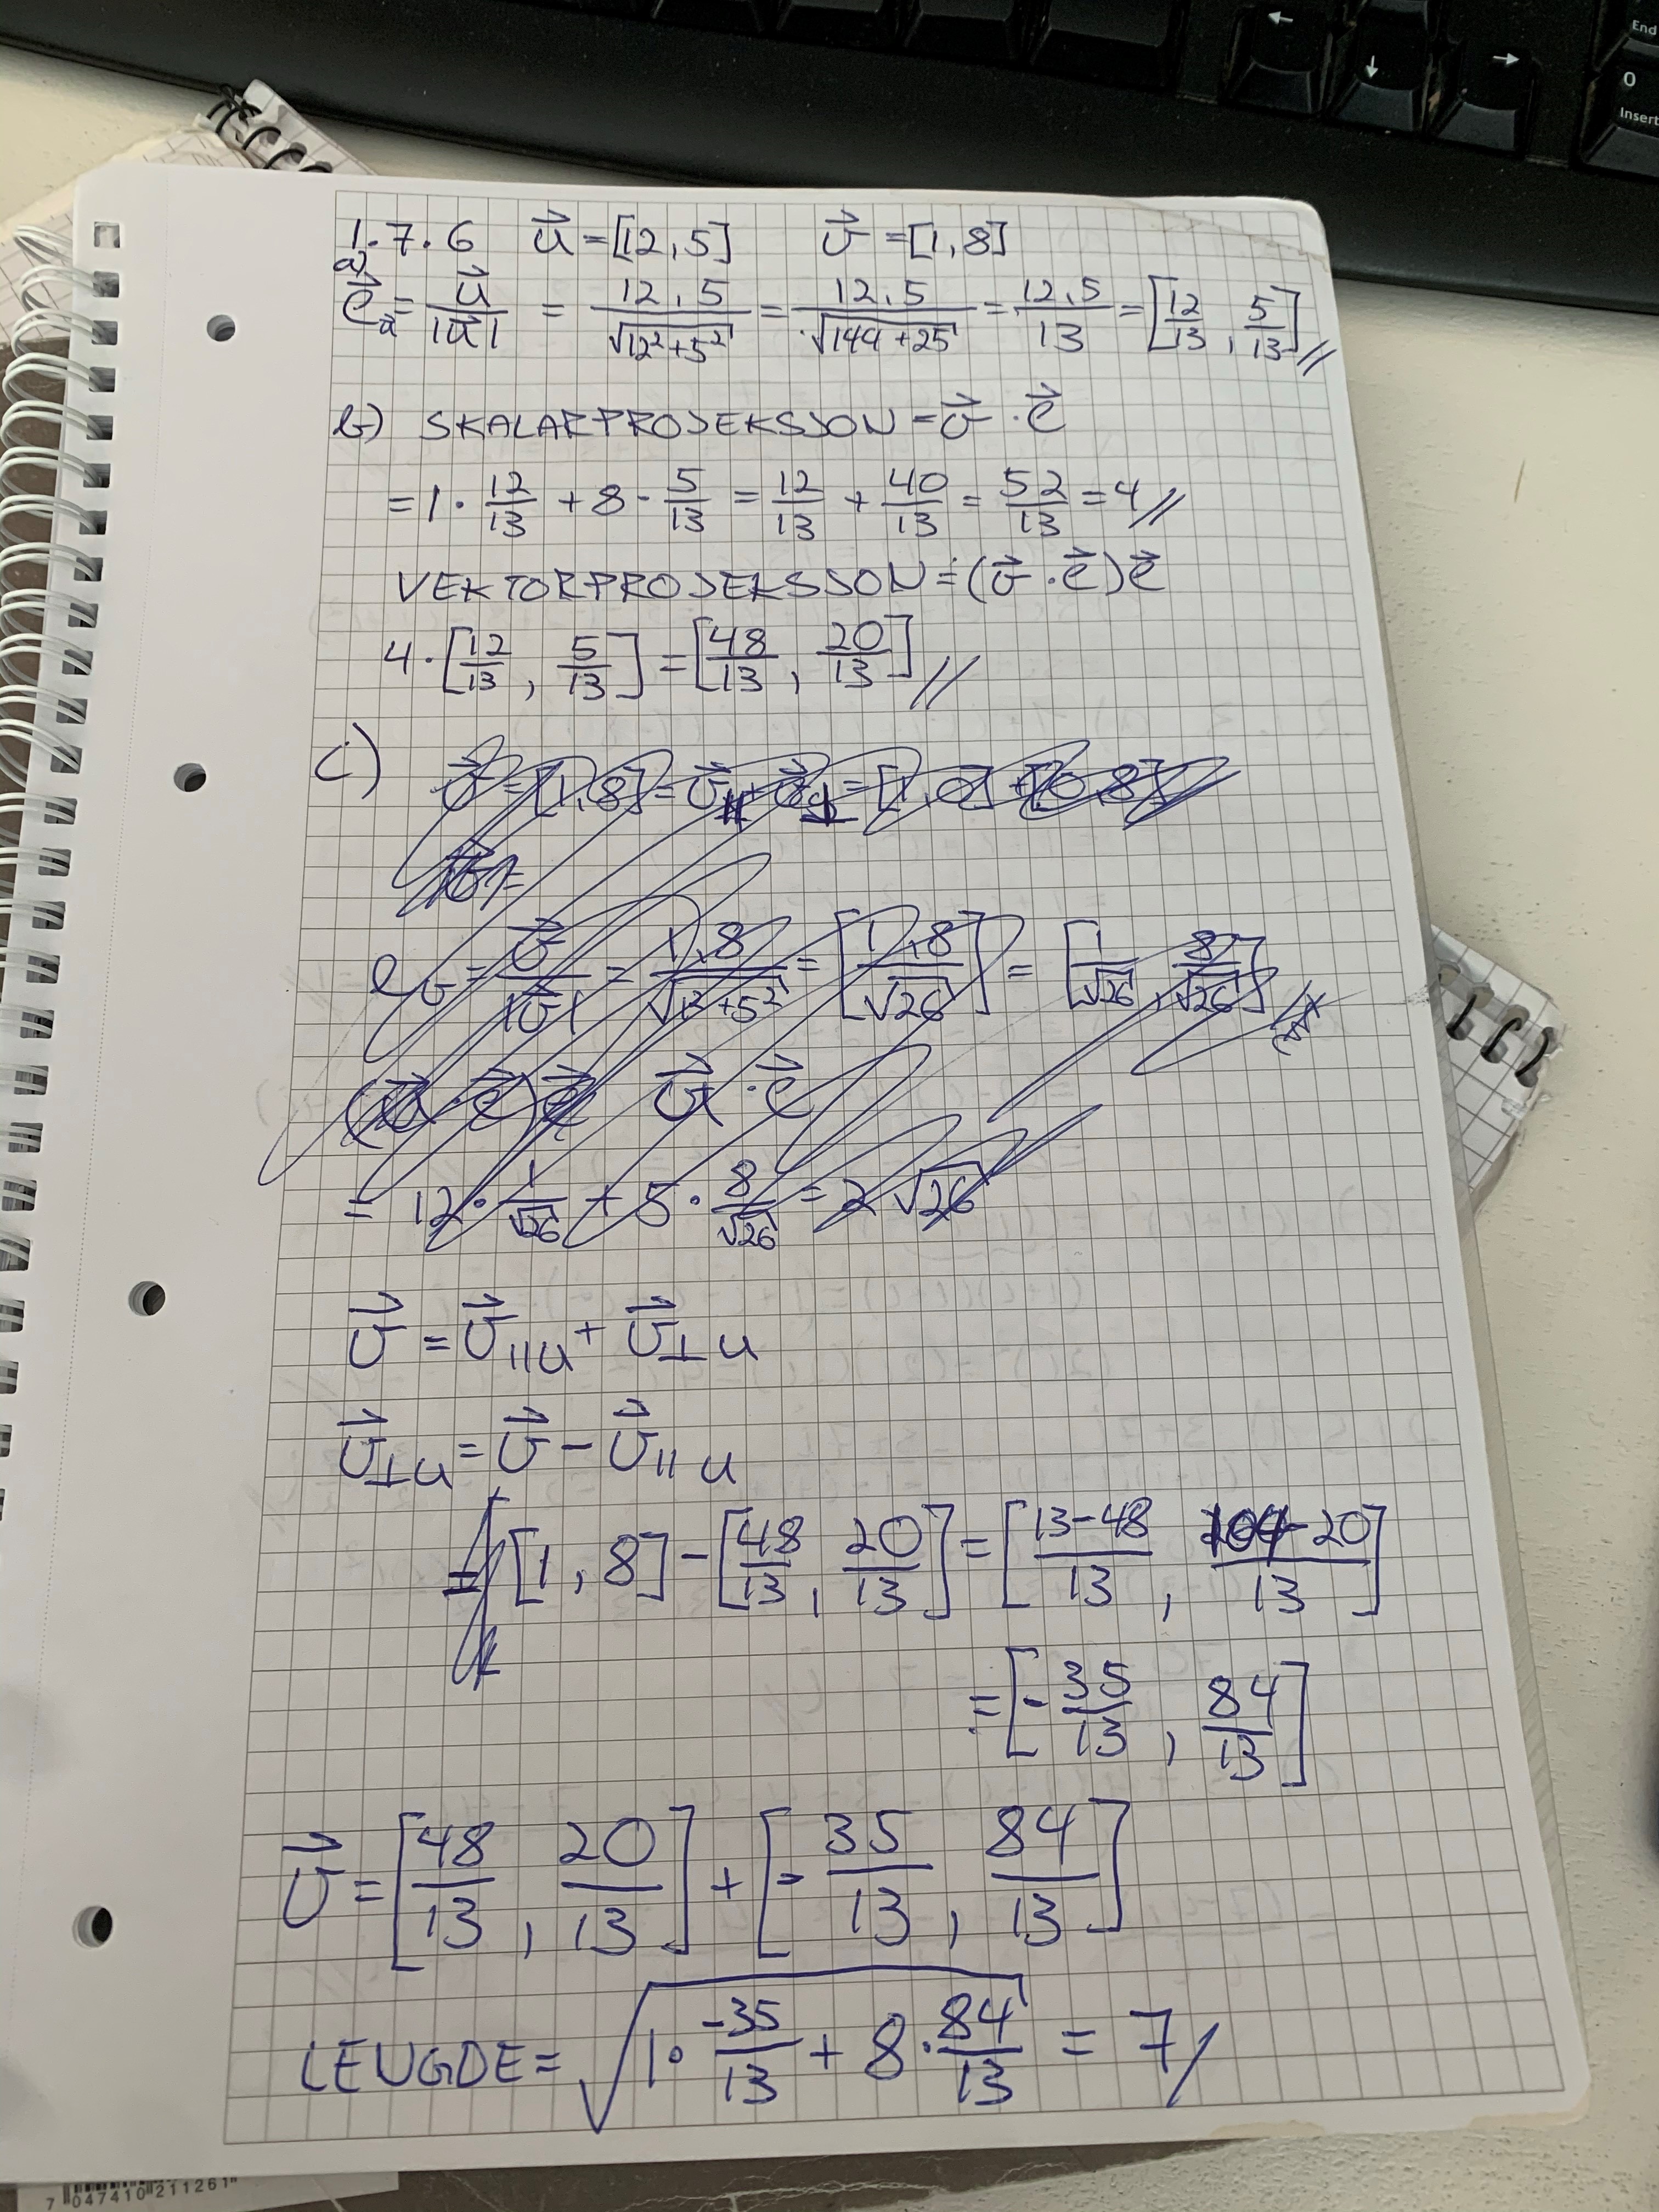 End
0
Insert
← ↓ →
1.7.6 u⃗ = [12, 5] v⃗ = [1, 8]
a)
e⃗ᵤ = u⃗/|u⃗| = 12, 5/√(12²+5²) = 12, 5/√(144+25) = 12, 5/13 = [12/13, 5/13]//
b) SKALARPROJEKSJON = v⃗ · e⃗
= 1 · 12/13 + 8 · 5/13 = 12/13 + 40/13 = 52/13 = 4//
VEKTORPROJEKSJON = (v⃗ · e⃗)e⃗
4 · [12/13, 5/13] = [48/13, 20/13]//
c) v⃗ = [1, 8] = v⃗∥ + v⃗⊥ = [1, 0] + [0, 8]
|v⃗| =
eᵥ = v⃗/|v⃗| = 1, 8/√(1²+5²) = [1, 8/√26] = [1/√26, 8/√26]
(u⃗ · e⃗)e⃗ u⃗ · e⃗
= 12 · 1/√26 + 5 · 8/√26 = 2√26
v⃗ = v⃗∥u + v⃗⊥u
v⃗⊥u = v⃗ − v⃗∥u
= [1, 8] − [48/13, 20/13] = [13−48/13, 104−20/13]
= [−35/13, 84/13]
v⃗ = [48/13, 20/13] + [−35/13, 84/13]
LENGDE = √(1 · −35/13 + 8 · 84/13) = 7/
7 047410 211261